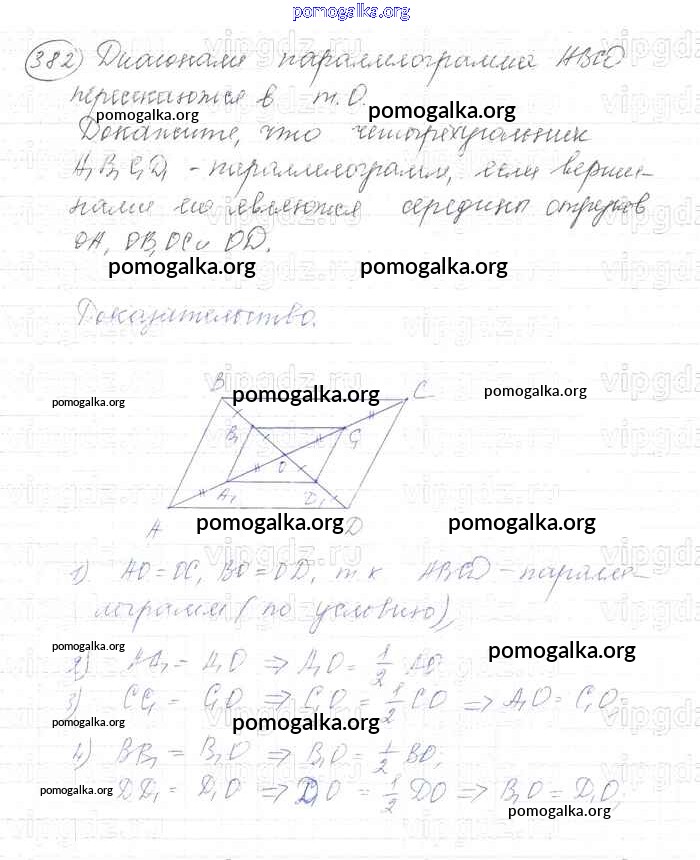 pomogalka.org
382) Диагонали параллелограмма ABCD
пересекаются в т. O.
pomogalka.org
pomogalka.org
Докажите, что четырехугольник
A₁B₁C₁D₁ - параллелограмм, если верши-
нами его являются середины отрезков
OA, OB, OC и OD.
pomogalka.org pomogalka.org
Доказательство.
B C
pomogalka.org pomogalka.org pomogalka.org
B₁ C₁
O
A₁ D₁
A D
pomogalka.org pomogalka.org
1) AO = OC, BO = OD, т.к ABCD - паралле-
лограмм (по условию),
pomogalka.org pomogalka.org
2) AA₁ = A₁O ⇒ A₁O = 1/2 AO
3) CC₁ = C₁O ⇒ C₁O = 1/2 CO ⇒ A₁O = C₁O;
pomogalka.org pomogalka.org
4) BB₁ = B₁O ⇒ B₁O = 1/2 BO,
DD₁ = D₁O ⇒ D₁O = 1/2 DO ⇒ B₁O = D₁O;
pomogalka.org pomogalka.org
vipgdz.ru